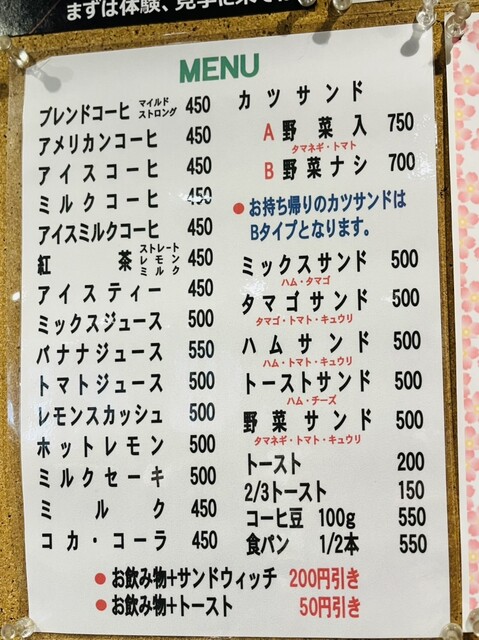 まずは体験、見学に来
MENU
ブレンドコーヒ マイルド ストロング 450
アメリカンコーヒ 450
アイスコーヒ 450
ミルクコーヒ 450
アイスミルクコーヒ 450
紅茶 ストレート レモン ミルク 450
アイスティー 450
ミックスジュース 500
バナナジュース 550
トマトジュース 500
レモンスカッシュ 500
ホットレモン 500
ミルクセーキ 500
ミルク 450
コカ・コーラ 450
カツサンド
A 野菜入 750
タマネギ・トマト
B 野菜ナシ 700
●お持ち帰りのカツサンドは
Bタイプとなります。
ミックスサンド 500
ハム・タマゴ
タマゴサンド 500
タマゴ・トマト・キュウリ
ハムサンド 500
ハム・トマト・キュウリ
トーストサンド 500
ハム・チーズ
野菜サンド 500
タマネギ・トマト・キュウリ
トースト 200
2/3トースト 150
コーヒ豆 100g 550
食パン 1/2本 550
●お飲み物+サンドウィッチ 200円引き
●お飲み物+トースト 50円引き